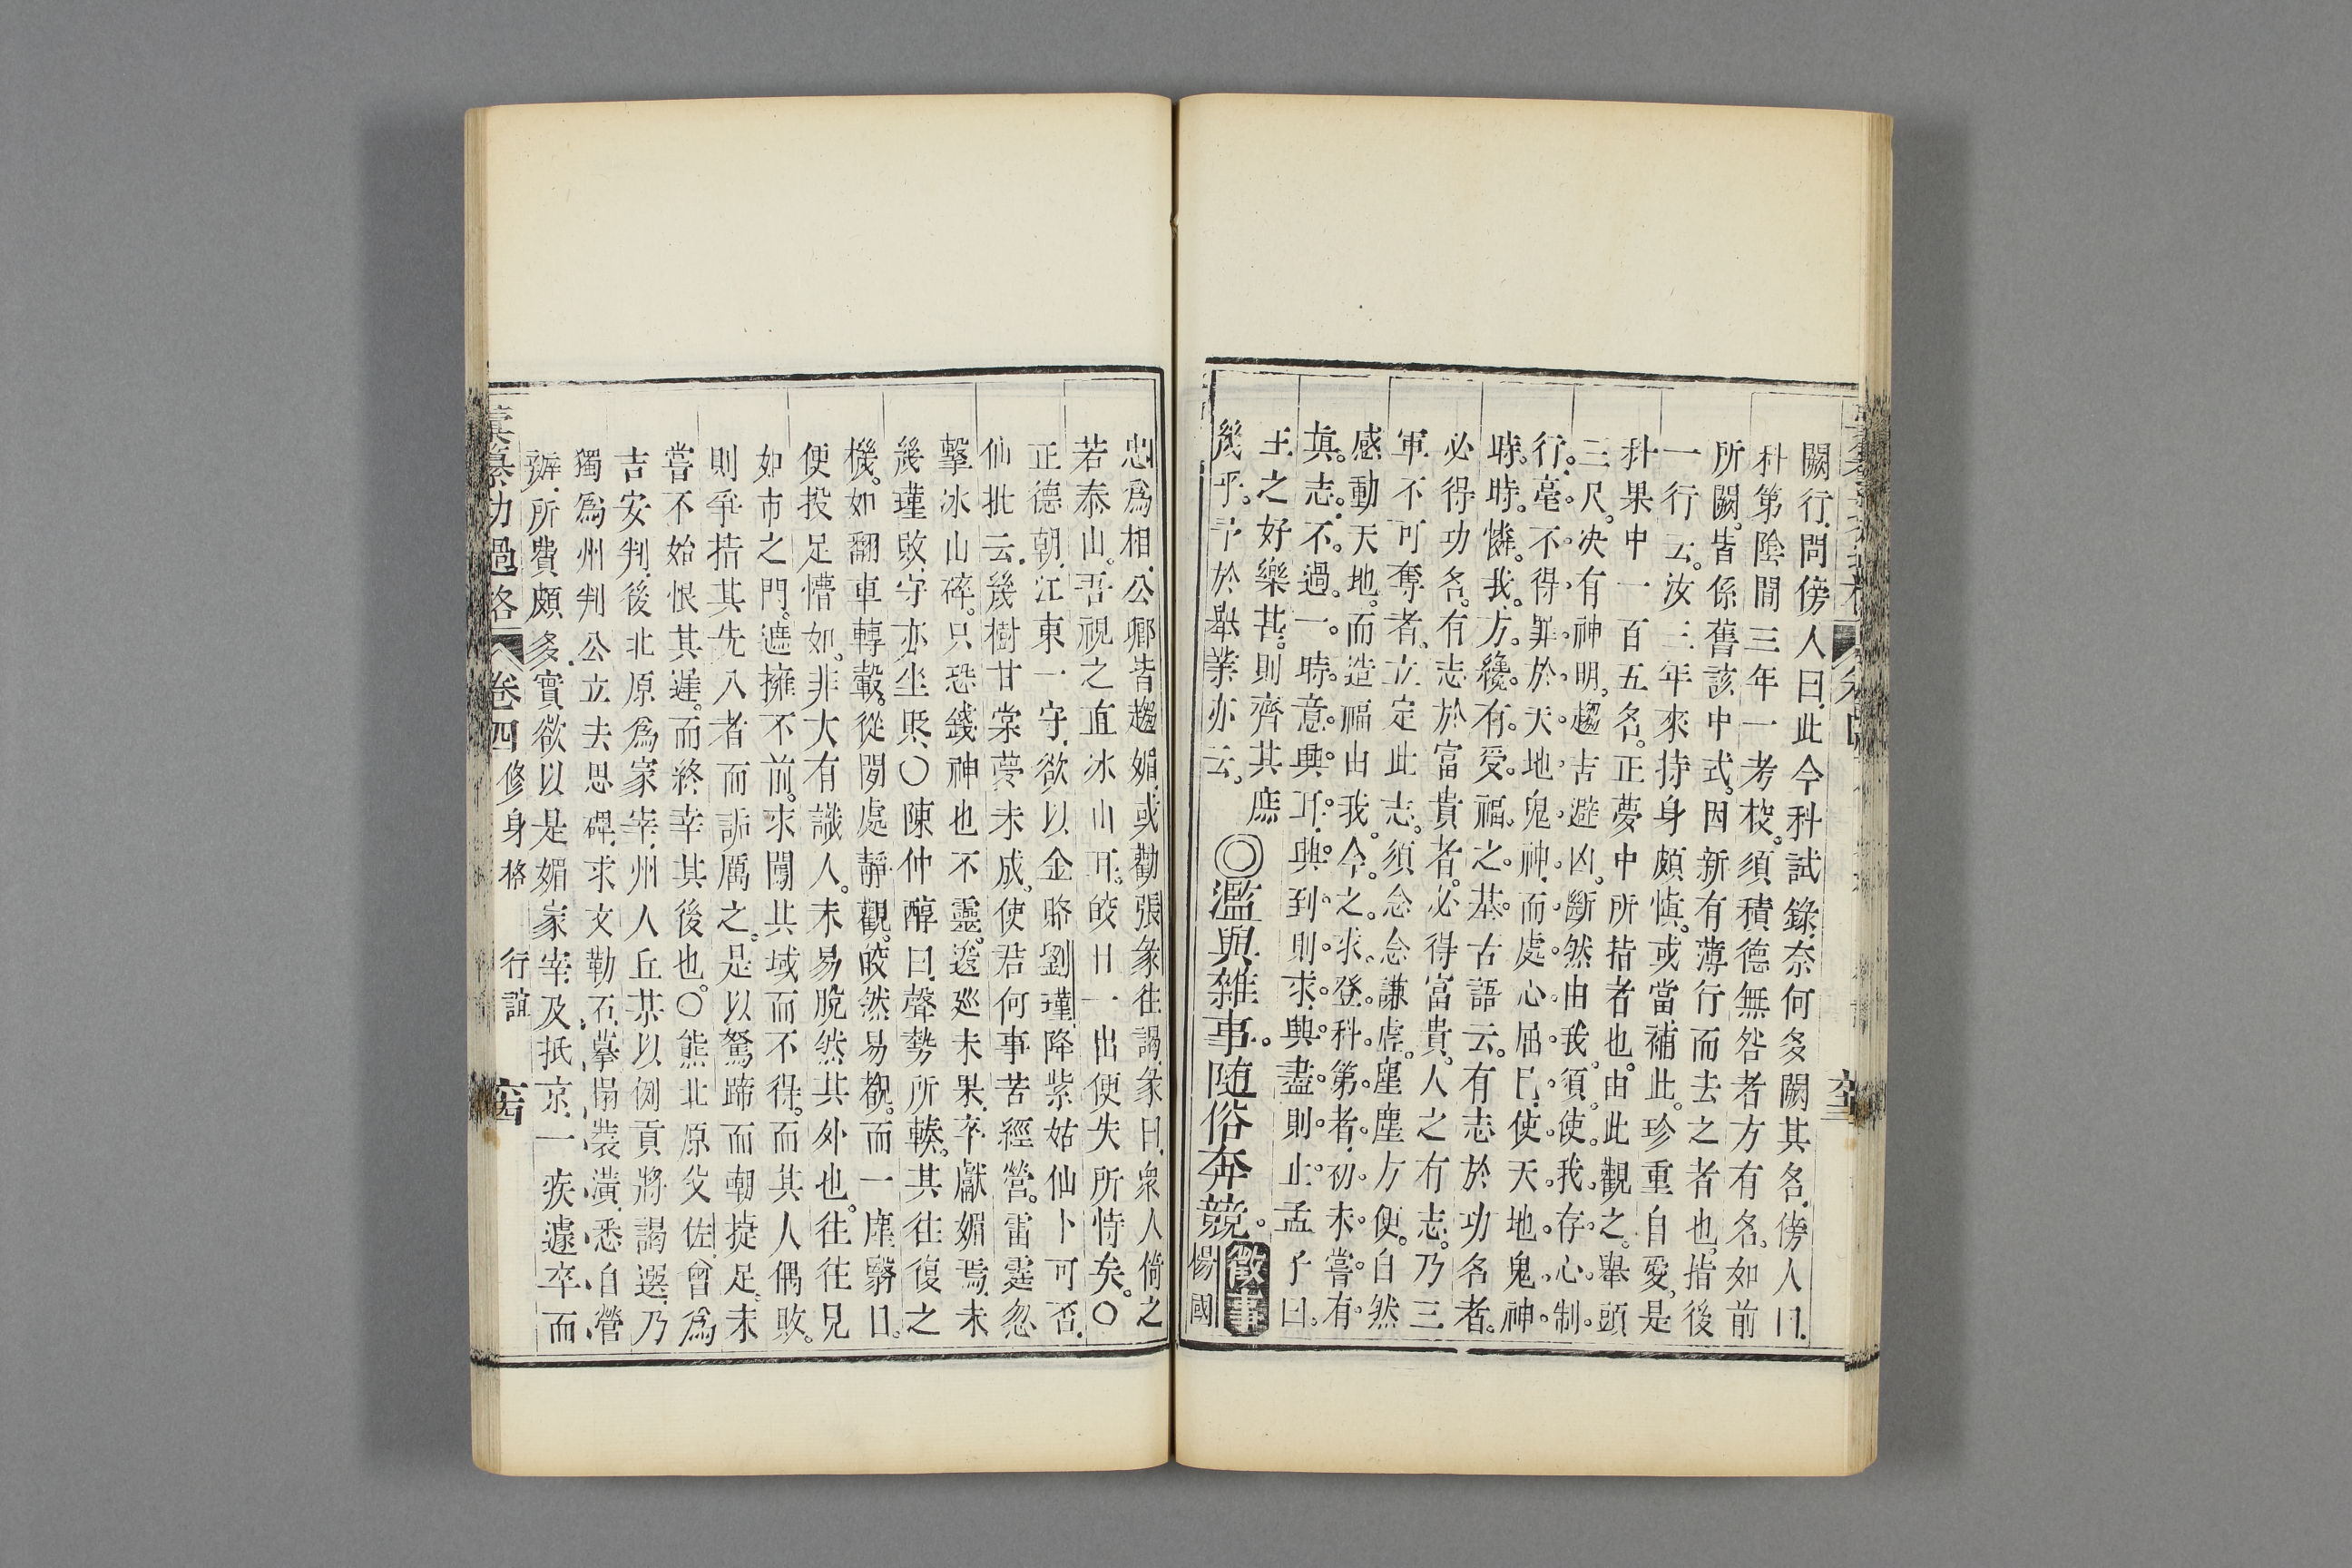 闕行問傍人曰此今科試錄奈何多闕其名傍人曰
科第陰間三年一考校須積德無咎者方有名如前
所闕皆係舊該中式因新有薄行而去之者也指後
一行云汝三年來持身頗慎或當補此珍重自愛是
科果中一百五名正夢中所指者也由此觀之舉頭
三尺決有神明趨吉避凶斷然由我須使我存心制
行毫不得罪於天地鬼神而處心屈己使天地鬼神
時時憐我方纔有受福之基古語云有志於功名者
必得功名有志於富貴者必得富貴人之有志乃三
軍不可奪者立定此志須念念謙虛塵塵方便自然
感動天地而造福由我今之求登科第者初未嘗有
真志不過一時意興耳興到則求興盡則止孟子曰
王之好樂甚則齊其庶
幾乎予於舉業亦云
◎濫與雜事隨俗奔競
徵事
楊國
忠爲相公卿皆趨媚或勸張彖往謁彖曰衆人倚之
若泰山吾視之直冰山耳皎日一出便失所恃矣○
正德朝江東一守欲以金賂劉瑾降紫姑仙卜可否
仙批云幾樹甘棠夢未成使君何事苦經營雷霆忽
擊冰山碎只恐錢神也不靈逡巡未果卒獻媚焉未
幾瑾敗守亦坐貶○陳仲醇曰聲勢所輳其往復之
機如翻車轉轂從閒處靜觀皎然易覩而一塵翳目
便投足懵如非大有識人未易脫然其外也往往見
如市之門遮擁不前求闖其域而不得而其人偶敗
則爭掊其先入者而詬厲之是以駑蹄而嘲捷足未
嘗不始恨其遲而終幸其後也○熊北原父佐曾爲
吉安判後北原爲家宰州人丘某以例貢將謁選乃
獨爲州判公立去思碑求文勒石摹搨裝潢悉自營
辦所費頗多實欲以是媚家宰及抵京一疾遽卒而
彙纂功過格
卷四
修身格
行誼